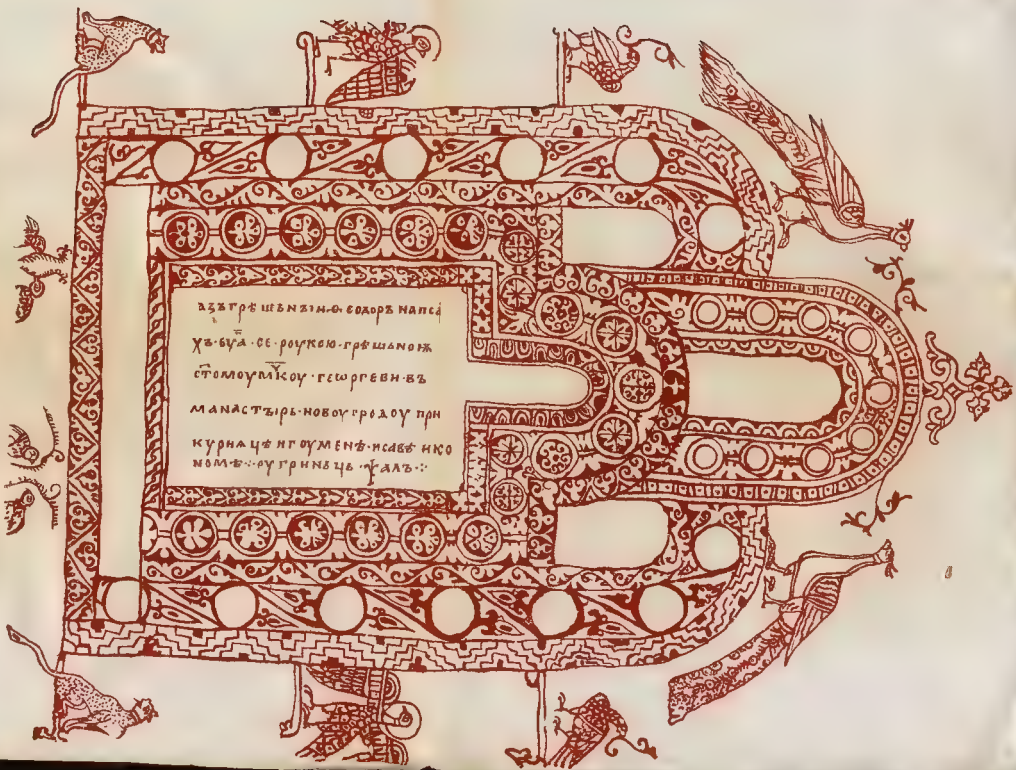 азъ грѣшьнꙑи · Ѳеодоръ напса
хъ · еѵ҃а · се · роукою · грѣшьноѭ
ст҃омоу м҃ѵкоу · георгеви · въ
манастꙑрь · новоу градоу при
курнацѣ игоуменѣ · и савѣ ико
номѣ ⁘ ѹгриньць · ѱалъ ⁘